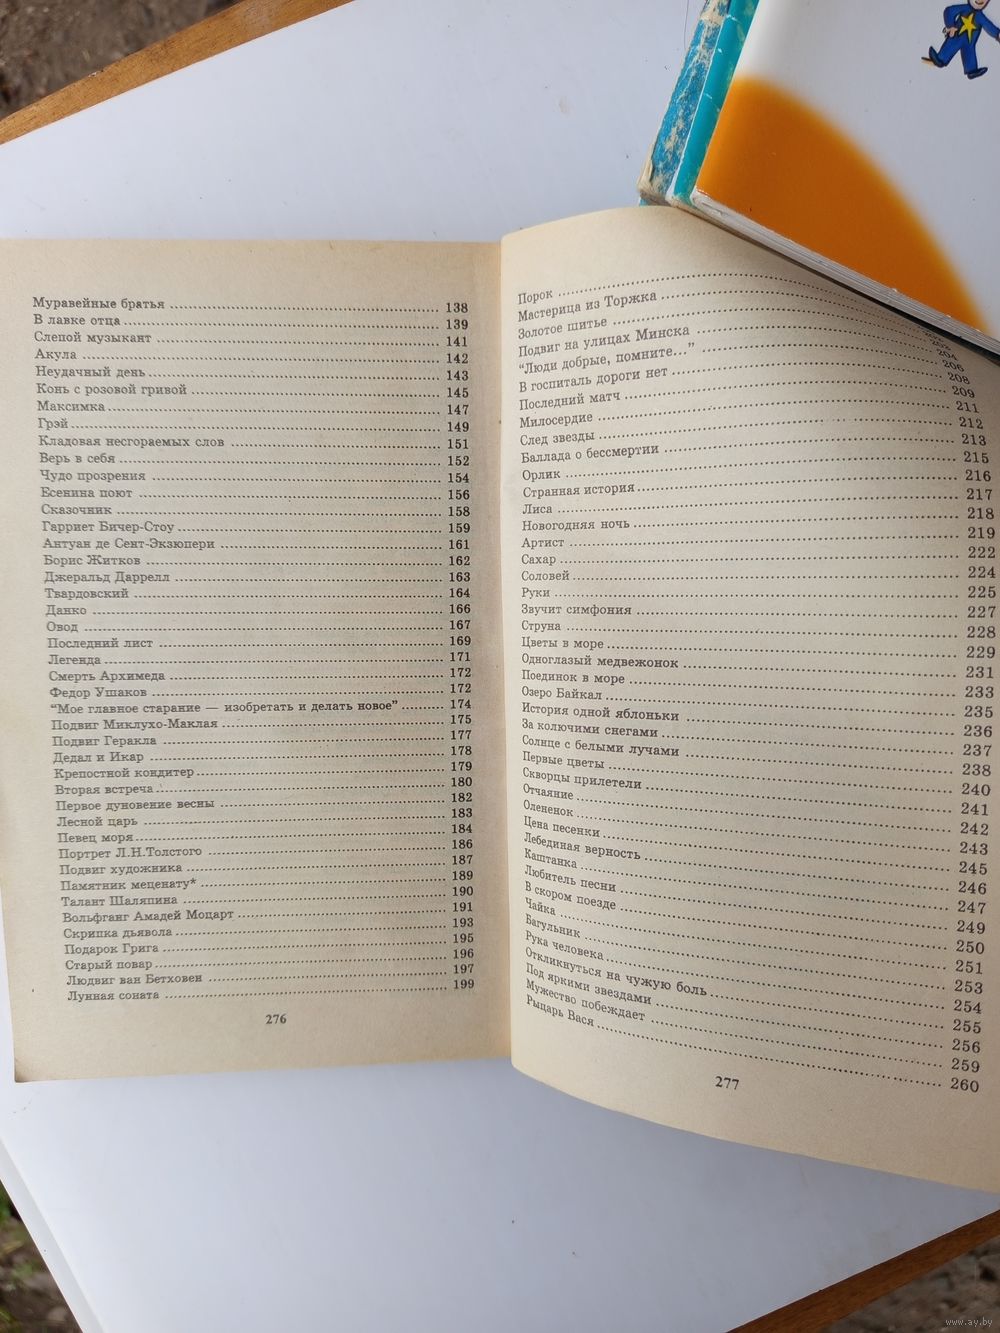 Муравейные братья 138
В лавке отца 139
Слепой музыкант 141
Акула 142
Неудачный день 143
Конь с розовой гривой 145
Максимка 147
Грэй 149
Кладовая несгораемых слов 151
Верь в себя 152
Чудо прозрения 154
Есенина поют 156
Сказочник 158
Гарриет Бичер-Стоу 159
Антуан де Сент-Экзюпери 161
Борис Житков 162
Джеральд Даррелл 163
Твардовский 164
Данко 166
Овод 167
Последний лист 169
Легенда 171
Смерть Архимеда 172
Федор Ушаков 172
“Мое главное старание — изобретать и делать новое” 174
Подвиг Миклухо-Маклая 175
Подвиг Геракла 177
Дедал и Икар 178
Крепостной кондитер 179
Вторая встреча 180
Первое дуновение весны 182
Лесной царь 183
Певец моря 184
Портрет Л.Н.Толстого 186
Подвиг художника 187
Памятник меценату* 189
Талант Шаляпина 190
Вольфганг Амадей Моцарт 191
Скрипка дьявола 193
Подарок Грига 195
Старый повар 196
Людвиг ван Бетховен 197
Лунная соната 199
276
Порок
Мастерица из Торжка
Золотое шитье 203
Подвиг на улицах Минска 204
“Люди добрые, помните...” 206
В госпиталь дороги нет 208
Последний матч 209
Милосердие 211
След звезды 212
Баллада о бессмертии 213
Орлик 215
Странная история 216
Лиса 217
Новогодняя ночь 218
Артист 219
Сахар 222
Соловей 224
Руки 225
Звучит симфония 227
Струна 228
Цветы в море 229
Одноглазый медвежонок 231
Поединок в море 233
Озеро Байкал 235
История одной яблоньки 236
За колючими снегами 237
Солнце с белыми лучами 238
Первые цветы 240
Скворцы прилетели 241
Отчаяние 242
Олененок 243
Цена песенки 245
Лебединая верность 246
Каштанка 247
Любитель песни 249
В скором поезде 250
Чайка 251
Багульник 253
Рука человека 254
Откликнуться на чужую боль 255
Под яркими звездами 256
Мужество побеждает 259
Рыцарь Вася 260
277
www.ay.by